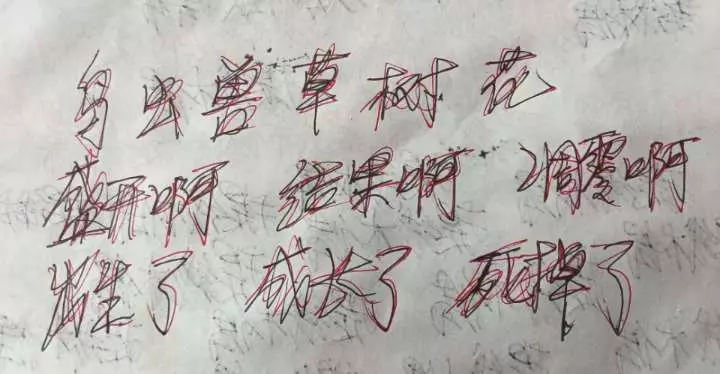 鸟虫兽草树花
盛开啊 结果啊 凋零啊
出生了 成长了 死掉了